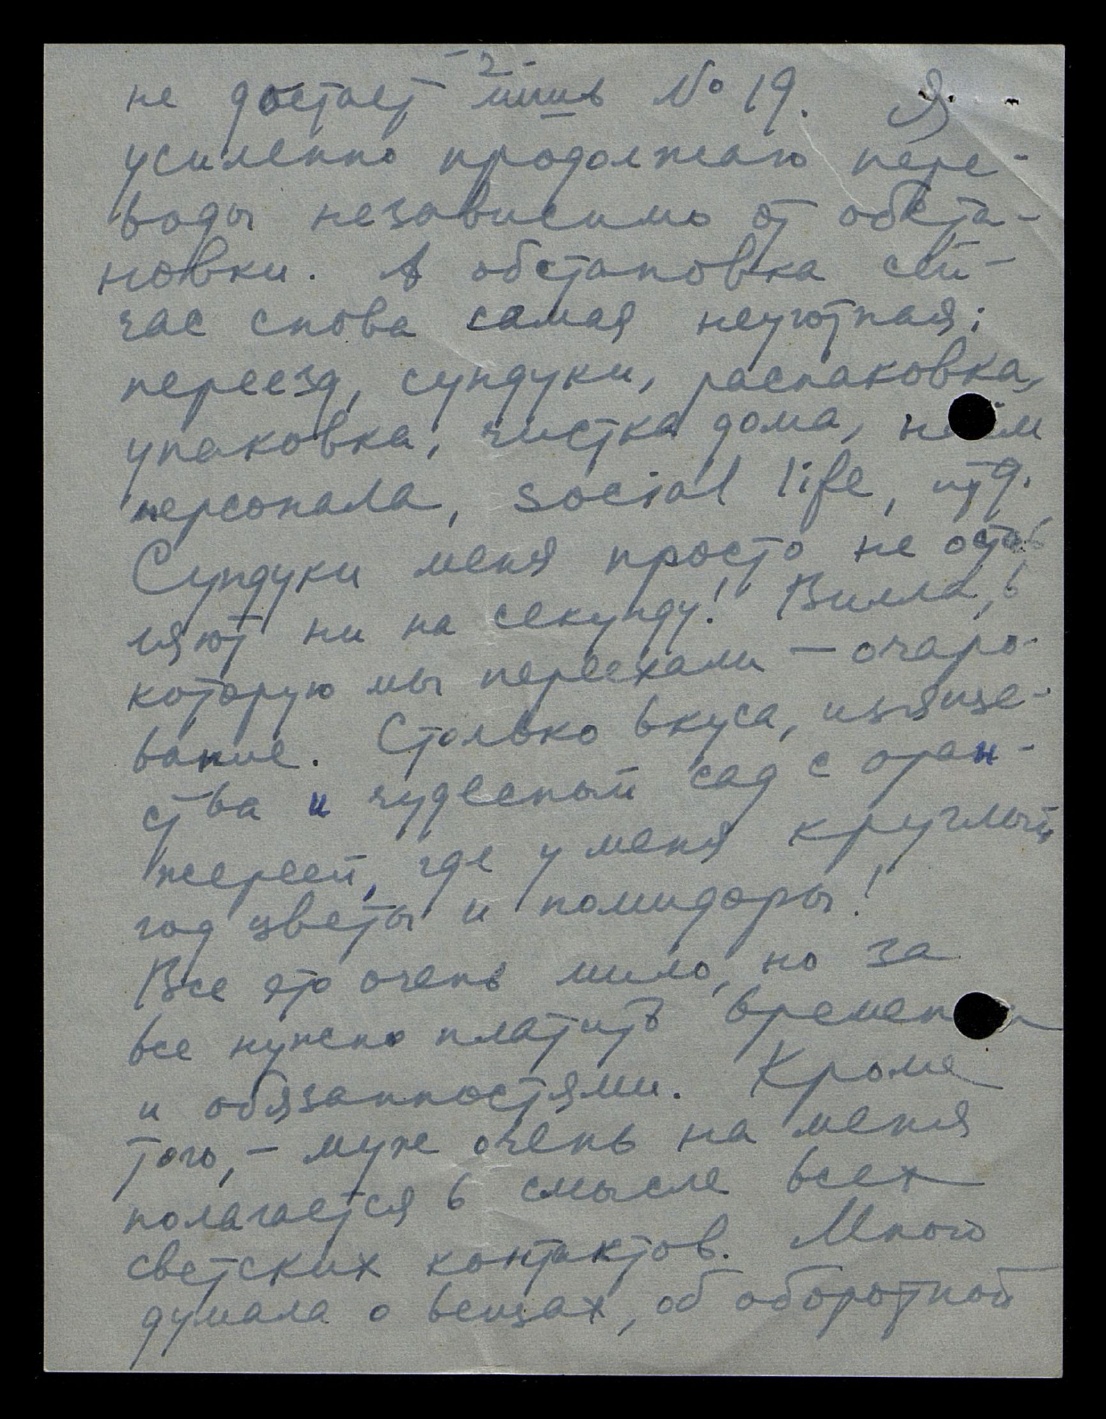 - 2 -
не достает лишь № 19. Я
усиленно продолжаю пере-
воды независимо от обста-
новки. А обстановка сей-
час снова самая неуютная:
переезд, сундуки, распаковка,
упаковка, чистка дома, наём
персонала, social life, итд.
Сундуки меня просто не остав
ляют ни на секунду! Вилла, в
которую мы переехали — очаро-
вание. Столько вкуса, изяще-
ства и чудесный сад с оран-
жереей, где у меня круглый
год цветы и помидоры!
Все это очень мило, но за
все нужно платить временем
и обязанностями. Кроме
того, - муж очень на меня
полагается в смысле всех
светских контактов. Много
думала о вещах, об оборотной